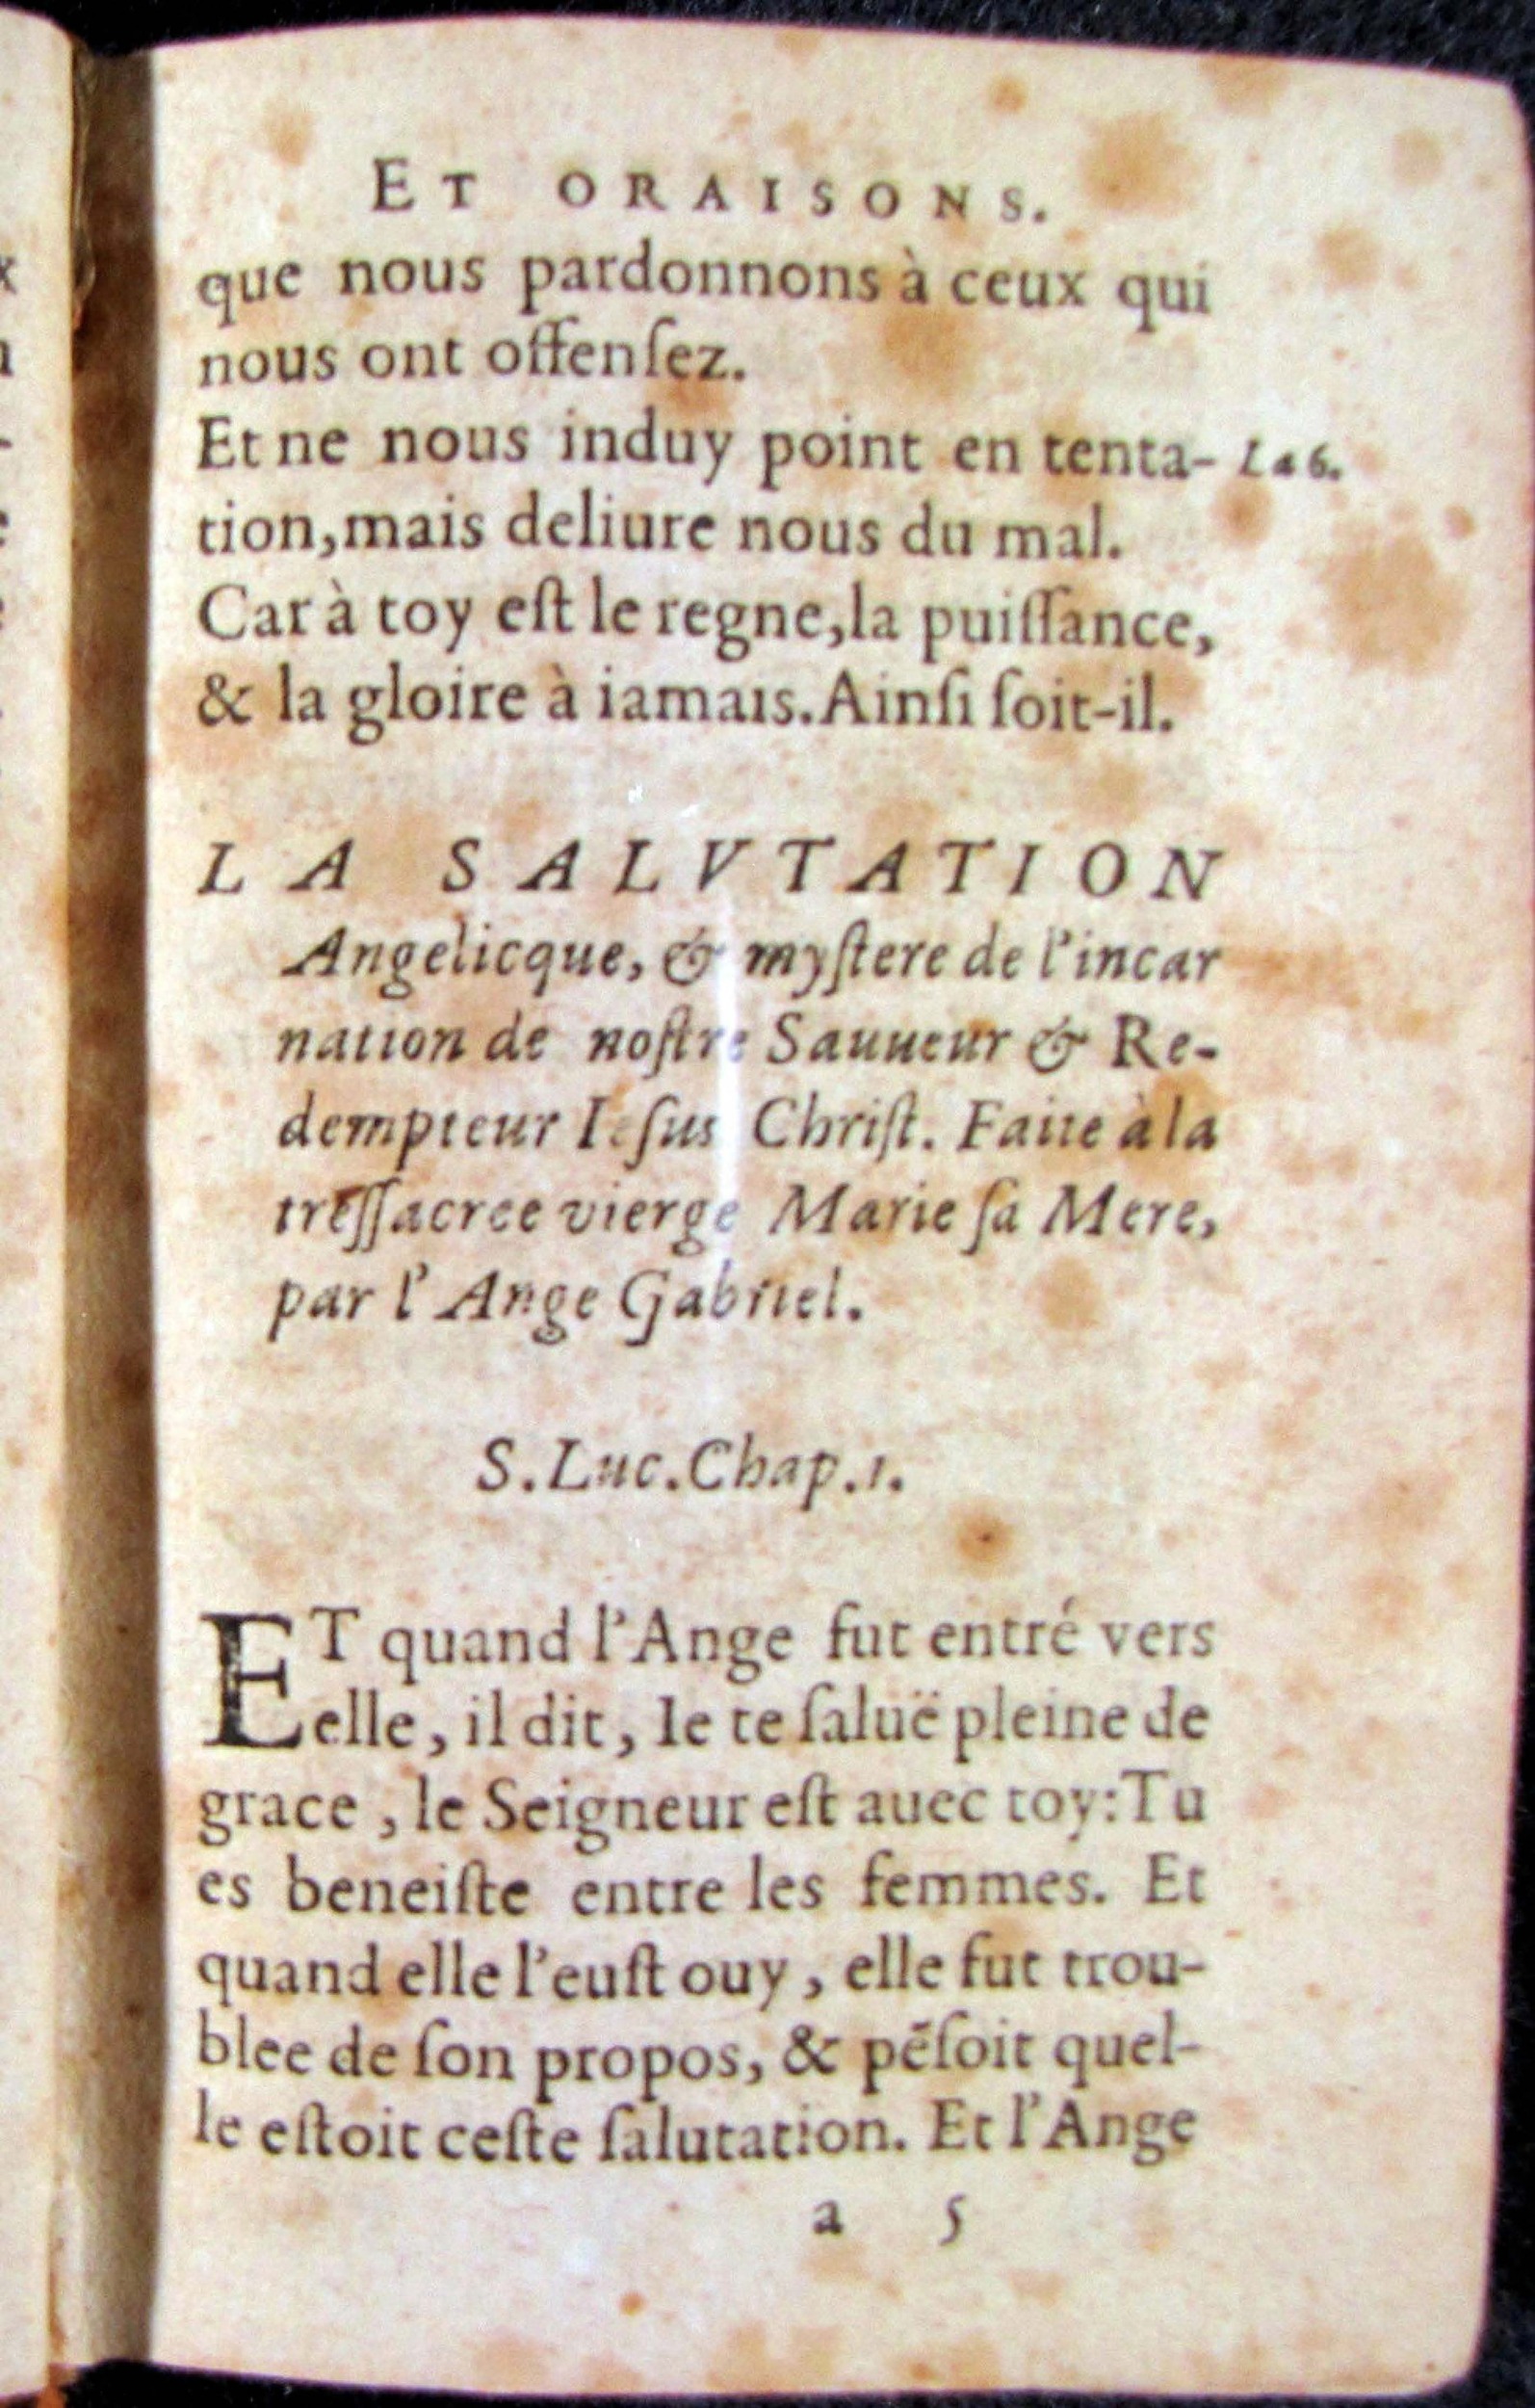 ET ORAISONS.
que nous pardonnons à ceux qui
nous ont offenſez.
Et ne nous induy point en tenta- La 6.
tion, mais deliure nous du mal.
Car à toy eſt le regne, la puiſſance,
& la gloire à iamais. Ainſi ſoit-il.
LA SALVTATION
Angelicque, & myſtere de l'incar
nation de noſtre Sauueur & Re-
dempteur Ieſus Chriſt. Faite à la
treſſacree vierge Marie ſa Mere,
par l'Ange Gabriel.
S. Luc. Chap. 1.
ET quand l'Ange fut entré vers
elle, il dit, Ie te ſaluë pleine de
grace, le Seigneur eſt auec toy: Tu
es beneiſte entre les femmes. Et
quand elle l'euſt ouy, elle fut trou-
blee de ſon propos, & pēſoit quel-
le eſtoit ceſte ſalutation. Et l'Ange
a 5